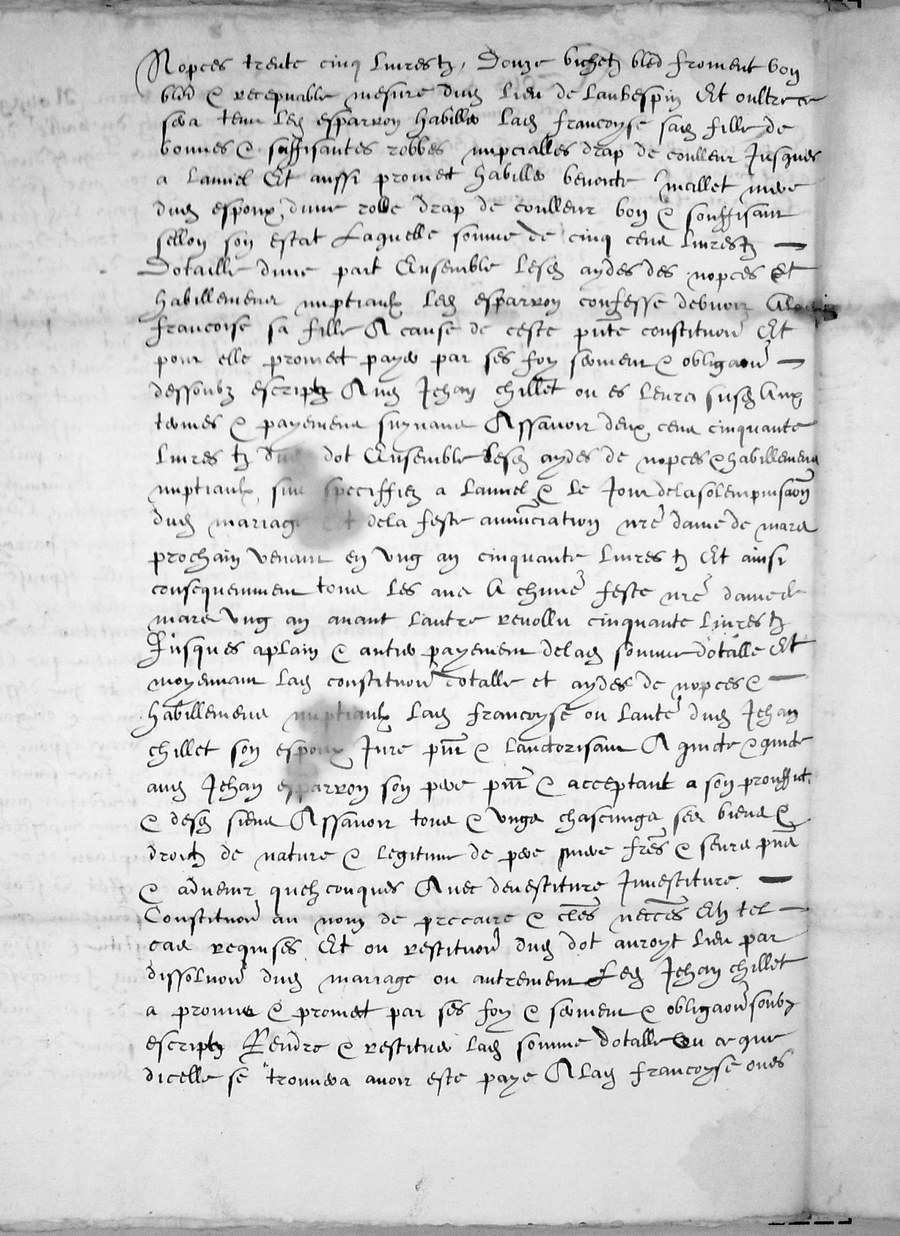 Nopces trente cinq livres tz, Douze bichetz bled froment bon
bled & recepvable mesure dud lieu de Laubespin Et oultre ce
sera tenu led esparron habiller lad francoyse sad fille de
bonnes & suffisantes robbes nupcialles drap de coulleur Jusques
a Et aussi promect habiller benoicte millet mere
dud espoux dune robbe drap de coulleur bon & souffisant
sellon son estat Laquelle somme de cinq cens livres tz
Dotalle dune part Ensemble lesd aydes des nopces Et
habillemens nuptiaulx led esparron confesse debvoir A lad
francoise sa fille A cause de ceste pnte constitution Et
pour elle promect payer par ses foy serment & obligaon
dessoubz escriptz Aud Jehan chillet ou es leurs susd Aux
termes & payemens suyvans Assavoir deux cens cinquante
livres tz dud dot Ensemble lesd aydes de nopces & habillemens
nuptiaulx, sus speciffiez a & le Jour de la solempnisaon
dud mariage Et de la feste annunciation nre dame de mars
prochain venant en ung an cinquante livres tz Et ainsi
consequemment tous les ans A chune feste nre dame de
mars Ung an avant lautre revollu cinquante livres tz
Jusques a plain & entier payement de lad somme dotalle Et
moyennant lad constitution dotalle et aydes de nopces &
habillemens nuptiaulx lad francoyse ou laucte dud Jehan
chillet son espoux Jure pnt & lauctorisant A quicte & quicte
aud Jehan esparron son pere pnt & acceptant a son prouffict
& desd siens Assavoir tous & ungs chascungs ses biens &
droictz de nature & legitime de pere mere freres & seurs pns
& advenir quelzconques Avec devestiture Investiture
Constitution au nom de precaire & cles necces Et tel
cas requises Et ou restitution dud dot auroyt lieu par
dissolution dud mariage ou autrement Led Jehan chillet
a promis & promect par ses foy & serment & obligaon soubz
escriptz Rendre & restituer lad somme dotalle Ou ce que
dicelle se trouvera avoir este paye A lad francoyse ou es